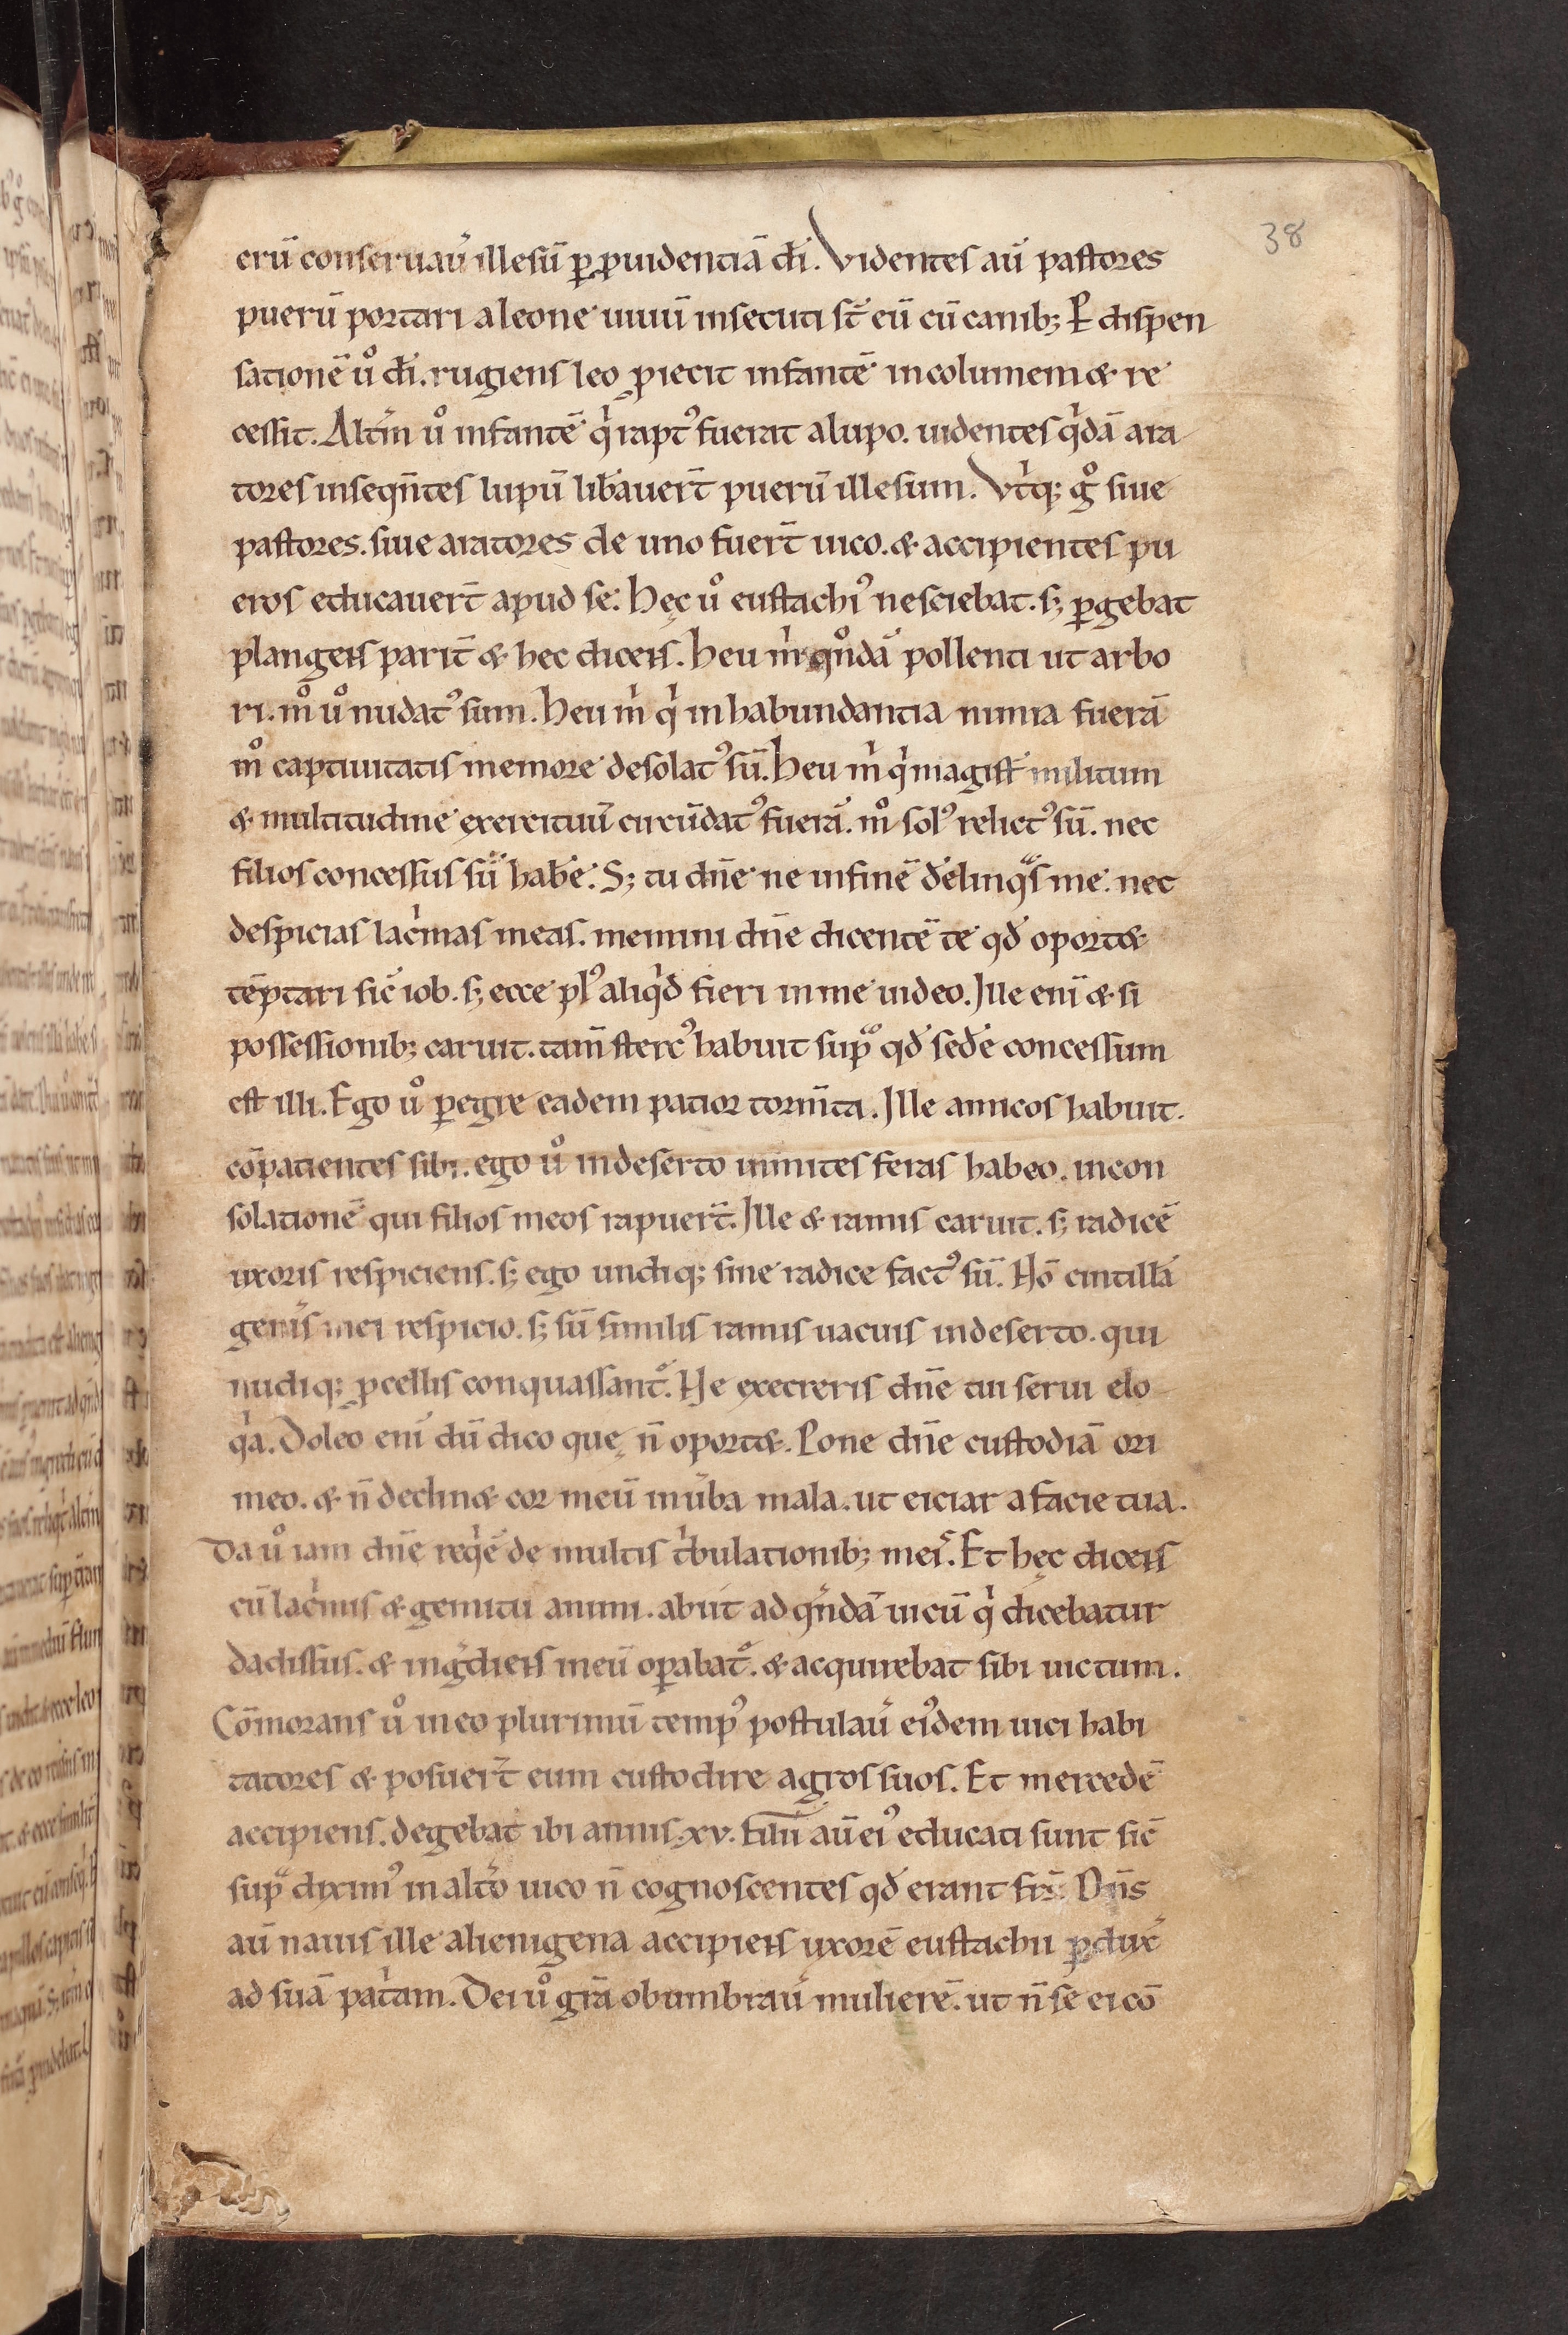 38
erū conseruauͥ illesū ꝑ ꝓuidentiā dī. Videntes aū pastores
puerū portari a leone uiuū insecuti st̄ eū cū canib; Et dispen
sationē uͦ dī. rugiens leo ꝓiecit infantē incolumem & re
cessit. Altm̄ uͦ infantē qͥ rapt᾿ fuerat a lupo. uidentes qͥdā ara
tores inseqn̄tes lupū lib̄auert̄ puerū illesum. Vtͥq; gͦ siue
pastores. siue aratores de uno fuert̄ uico. & accipientes pu
eros educauert̄ apud se. Hęc uͦ eustachi᾿ nesciebat. s; ꝑgebat
plangens parit̄ & hec dicens. Heu mͥ qͦndā pollenti ut arbo
ri. mͦ uͦ nudat᾿ sum. Heu mͥ qͥ in habundantia nimia fuerā
mͦ captiuitatis memore desolat᾿ sū. Heu mͥ qͥ magist̄ militum
& multitudine exercituū circūdat᾿ fuerā. mͦ sol᾿ relict᾿ sū. nec
filios concessus sū hab̄e. S; tu dn̄e ne in finē d̄elinqͣs me. nec
despicias lacͥmas meas. memini dn̄e dicentē te qd̄ oport&
tēptari sic̄ iob. s; ecce pl᾿ aliqͥd fieri in me uideo. Ille eni̅ & si
possessionib; caruit. tam̄ sterc᾿ habuit supͣ qd̄ sed̄e concessum
est illi. Ego uͦ ꝑegre eadem patior torm̄ta. Ille amicos habuit.
cōpatientes sibi. ego uͦ in deserto inmites feras habeo. in con
solationē qui filios meos rapuert̄. Ille & ramis caruit. s; radicē
uxoris respiciens. s; ego undiq; sine radice fact᾿ sū. Nō cintillā
gen̄is mei respicio. s; sū similis ramis uacuis in deserto. qui
undiq; ꝓcellis conquassant᷑. Ne execreris dn̄e tui serui elo
qͥa. Doleo eni̅ cū dico que n̄ oport&. Pone dn̄e custodiā ori
meo. & n̄ declin& cor meū in ūba mala. ut eiciar a facie tua.
Da uͦ iam dn̄e reqͥē de multis tͥbulationib; meis. Et hęc dicens
cū lacͥmis & gemitu animi. abiit ad qͣndā uicū qͥ dicebatur
dadissus. & ingͣdiens in eū oꝑabat᷑. & acquirebat sibi uictum.
Cōmorans uͦ in eo plurimū temp᾿ postulauͥ ei᾿dem uici habi
tatores & posuert̄ eum custodire agros suos. Et mercedē
accipiens. degebat ibi annis. xv. Filii aū ei᾿ educati sunt sic̄
supͣ dixim᾿ in alt̄o uico n̄ cognoscentes qd̄ erant frs̄. Dn̄s
aū nauis ille alienigena accipiens uxorē eustachii ꝑduxͥ
ad suā patͥam. Dei uͦ grā obumbrauͥ mulierē. ut n̄ se ei cō